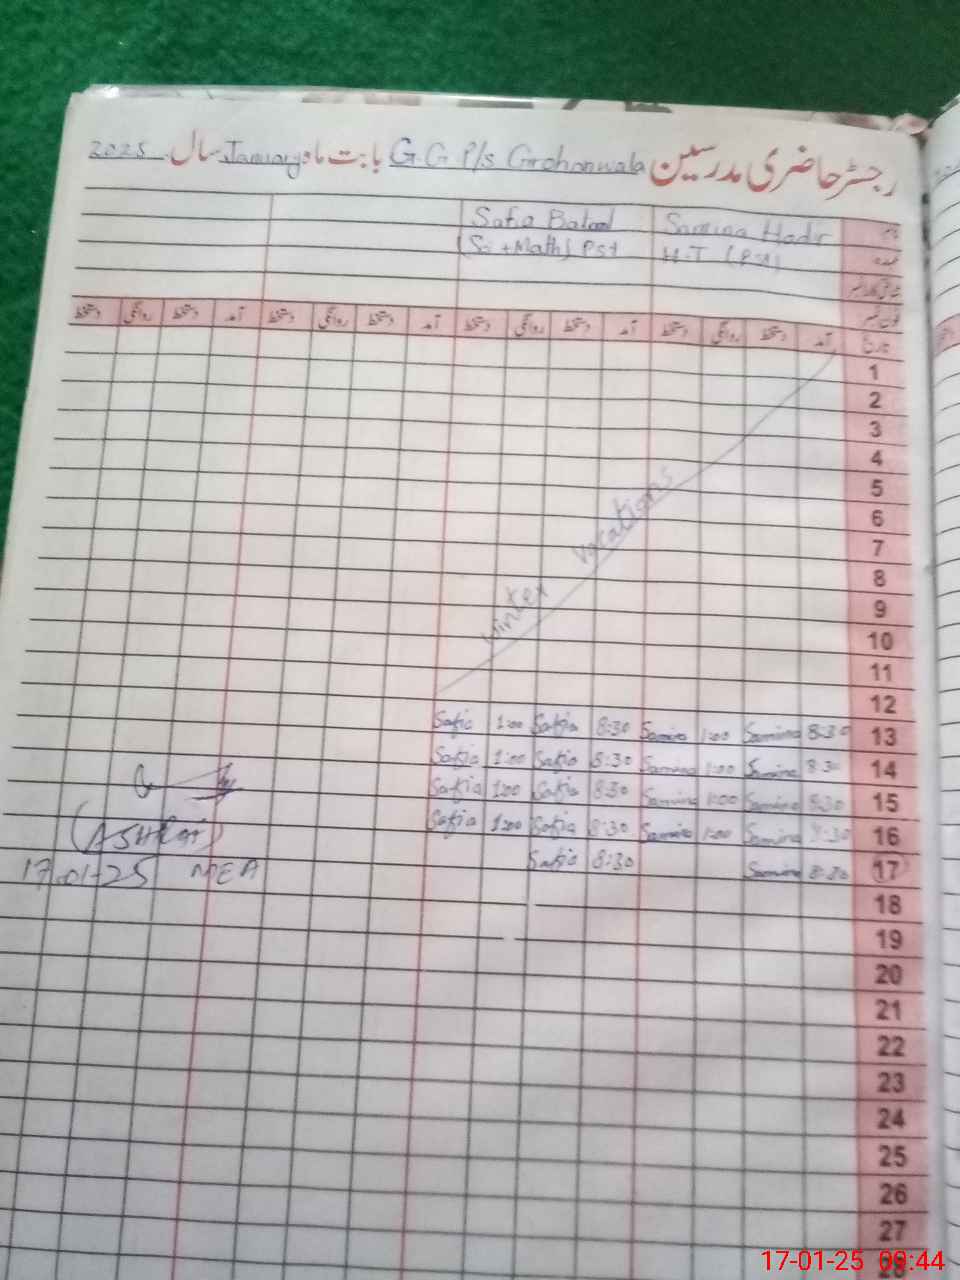 رجسٹر حاضری مدرسین G.G P/s Grohanwala بابت ماہ January سال 2025
نام Samina Hadir Safia Batool
عہدہ H.T (PST) (Sci + Math) PST
شناختی کارڈ نمبر
فون نمبر
تاریخ آمد دستخط روانگی دستخط آمد دستخط روانگی دستخط آمد دستخط روانگی دستخط آمد دستخط روانگی دستخط
1
2
3
4
5
6
7
8
9
10
11
12
winter vacations
13 8:30 Samina 1:00 Samina 8:30 Safia 1:00 Safia
14 8:30 Samina 1:00 Samina 8:30 Safia 1:00 Safia
15 8:30 Samina 1:00 Samina 8:30 Safia 1:00 Safia
16 8:30 Samina 1:00 Samina 8:30 Safia 1:00 Safia
17 8:30 Samina 8:30 Safia
(ASHRAF)
17-01-25 MEA
18
19
20
21
22
23
24
25
26
27
28
17-01-25 09:44